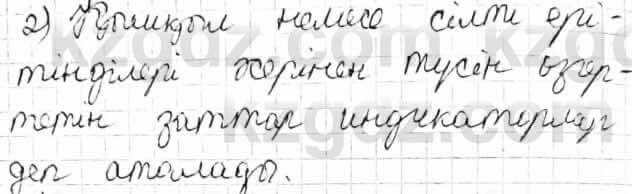 2) Қышқыл немесе сілті ері-
тінділері әсерінен түсін өзгер-
тетін заттар индикаторлар
деп аталады.